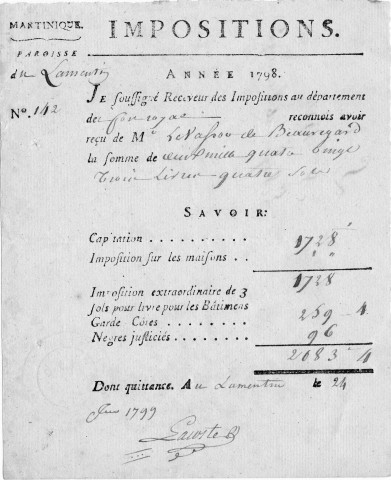 MARTINIQUE. IMPOSITIONS.
PAROISSE
du Lamentin
ANNÉE 1798.
No. 142
JE soussigné Receveur des Impositions au département
de fort royal reconnois avoir
reçu de Mr LeVassor de Beauregard
la somme de deux mille quatre vingt
trois Livres quatre Sols
SAVOIR:
Capitation . . . . . . . . . . 1728
Imposition sur les maisons . . " "
1728
Imposition extraordinaire de 3
sols pour livre pour les Bâtimens
Garde Côtes . . . . . . . . 259 4
Negres justiciés . . . . . . . 96
2083 4
Dont quittance. Au Lamentin le 24
1799
Lacoste